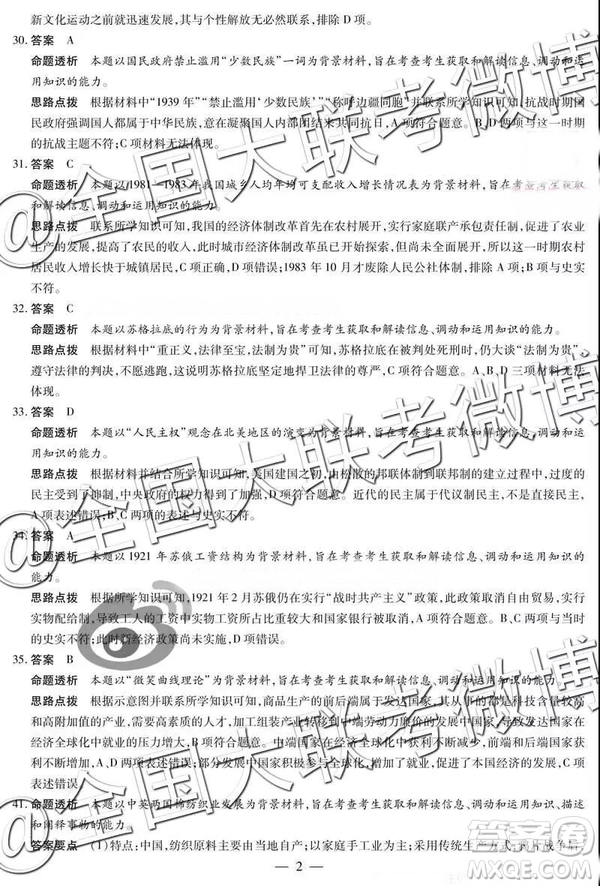 新文化运动之前就迅速发展,其与个性解放无必然联系,排除 D 项。
30. 答案 A
命题透析 本题以国民政府禁止滥用“少数民族”一词为背景材料,旨在考查考生获取和解读信息、调动和运
用知识的能力。
思路点拨 根据材料中“1939 年”“禁止滥用‘少数民族’”“称呼边疆同胞”并联系所学知识可知,抗战时期国
民政府强调国人都属于中华民族,意在凝聚国人内部团结共同抗日,A 项符合题意。B、D 两项与这一时期
的抗战主题不符;C 项材料无法体现。
31. 答案 C
命题透析 本题以1981—1983 年我国城乡人均年均可支配收入增长情况表为背景材料,旨在考查考生获取
和解读信息、调动和运用知识的能力。
思路点拨 联系所学知识可知,我国的经济体制改革首先在农村展开,实行家庭联产承包责任制,促进了农业
生产的发展,提高了农民的收入,此时城市经济体制改革虽已开始探索,但尚未全面展开,所以这一时期农村
居民收入增长快于城镇居民,C 项符合题意、D 项错误;1983 年 10 月才废除人民公社体制,排除 A 项;B 项与史实
不符。
32. 答案 C
命题透析 本题以苏格拉底的行为为背景材料,旨在考查考生获取和解读信息、调动和运用知识的能力。
思路点拨 根据材料中“重正义,法律至宝,法制为贵”可知,苏格拉底在被判处死刑时,仍大谈“法制为贵”,
遵守法律的判决,不愿逃离,这说明苏格拉底坚定地捍卫法律的尊严,C 项符合题意。A、B、D 三项材料无法
体现。
33. 答案 D
命题透析 本题以“人民主权”观念在北美地区的演变为背景材料,旨在考查考生获取和解读信息、调动和运
用知识的能力。
思路点拨 根据材料并结合所学知识可知,美国建国之初,由松散的邦联体制到联邦制的建立过程中,民主
受到了抑制,中央政府的权力得到了加强,D 项符合题意。近代的民主属于代议制民主,不是直接民主,
A 项表述错误;B、C 两项的表述与史实不符。
34. 答案 A
命题透析 本题以 1921 年苏俄工资结构为背景材料,旨在考查考生获取和解读信息、调动和运用知识的
能力。
思路点拨 根据所学知识可知,1921 年 2 月苏俄仍在实行“战时共产主义”政策,此政策取消自由贸易,实行
实物配给制,导致工人的工资中实物工资所占比重较大,A 项符合题意。B、C 两项
史实不符;此时新经济政策尚未实施,D 项错误。
35. 答案 B
命题透析 本题以“微笑曲线理论”为背景材料,旨在考查考生获取和解读信息、调动和运用知识的能力。
思路点拨 根据示意图并联系所学知识可知,商品生产的前后端属于发达国家,其主要依靠科技含量较高
的高附加值的产业,影响世界经济的发展,而加工组装产业多以中端劳动力廉价的发展中国家为主,发达国家在
经济全球化中就业压力增大,B 项符合题意。中端国家在经济全球化中获利不断减少,前后端发达国家获
利不断增加,A、D 项表述错误;部分发展中国家积极参与全球化,促进了本国经济的发展,C 项
表述错误。
41. 命题透析 本题以中英两国棉纺织业发展为背景材料,旨在考查考生获取和解读信息、调动和运用知识、描述
和阐释事物的能力。
答案要点 (1)特点:中国,纺织原料主要由当地自产;以家庭手工业为主;采用传统生产方式;于战争后
— 2 —
@全国大联考微博
@全国大联考微博
@全国大联考微博
答案圈
MXQE.COM